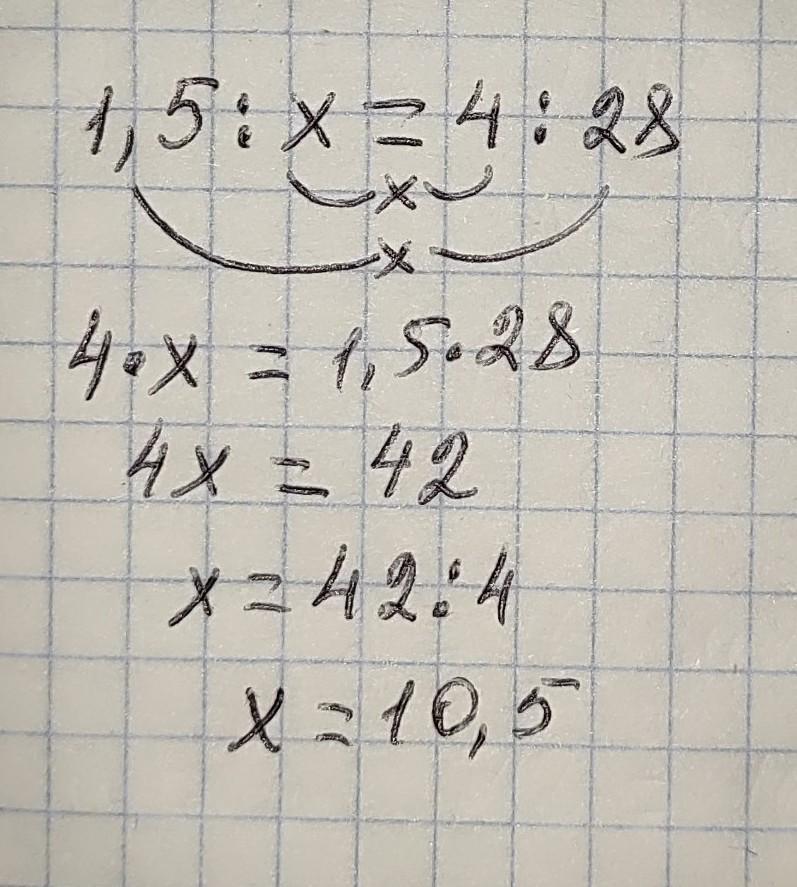 1,5 : x = 4 : 28
x
x
4 · x = 1,5 · 28
4x = 42
x = 42 : 4
x = 10,5